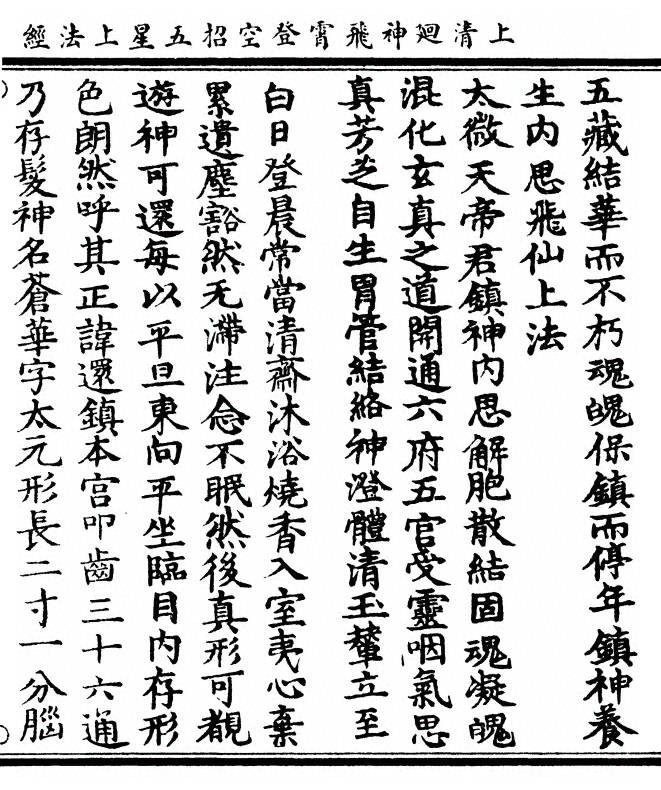 上清迴神飛霄登空招五星上法經
五藏結華而不朽魂魄保鎮而停年鎮神養
生內思飛仙上法
太微天帝君鎮神內思解胞散結固魂凝魄
混化玄真之道開通六府五官受靈咽氣思
真芳芝自生胃管結絡神澄體清玉輦立至
白日登晨常當清齋沐浴燒香入室夷心棄
累遺塵豁然无滯注念不眠然後真形可覩
遊神可還每以平旦東向平坐臨目內存形
色朗然呼其正諱還鎮本宮叩齒三十六通
乃存髮神名蒼華字太元形長二寸一分腦